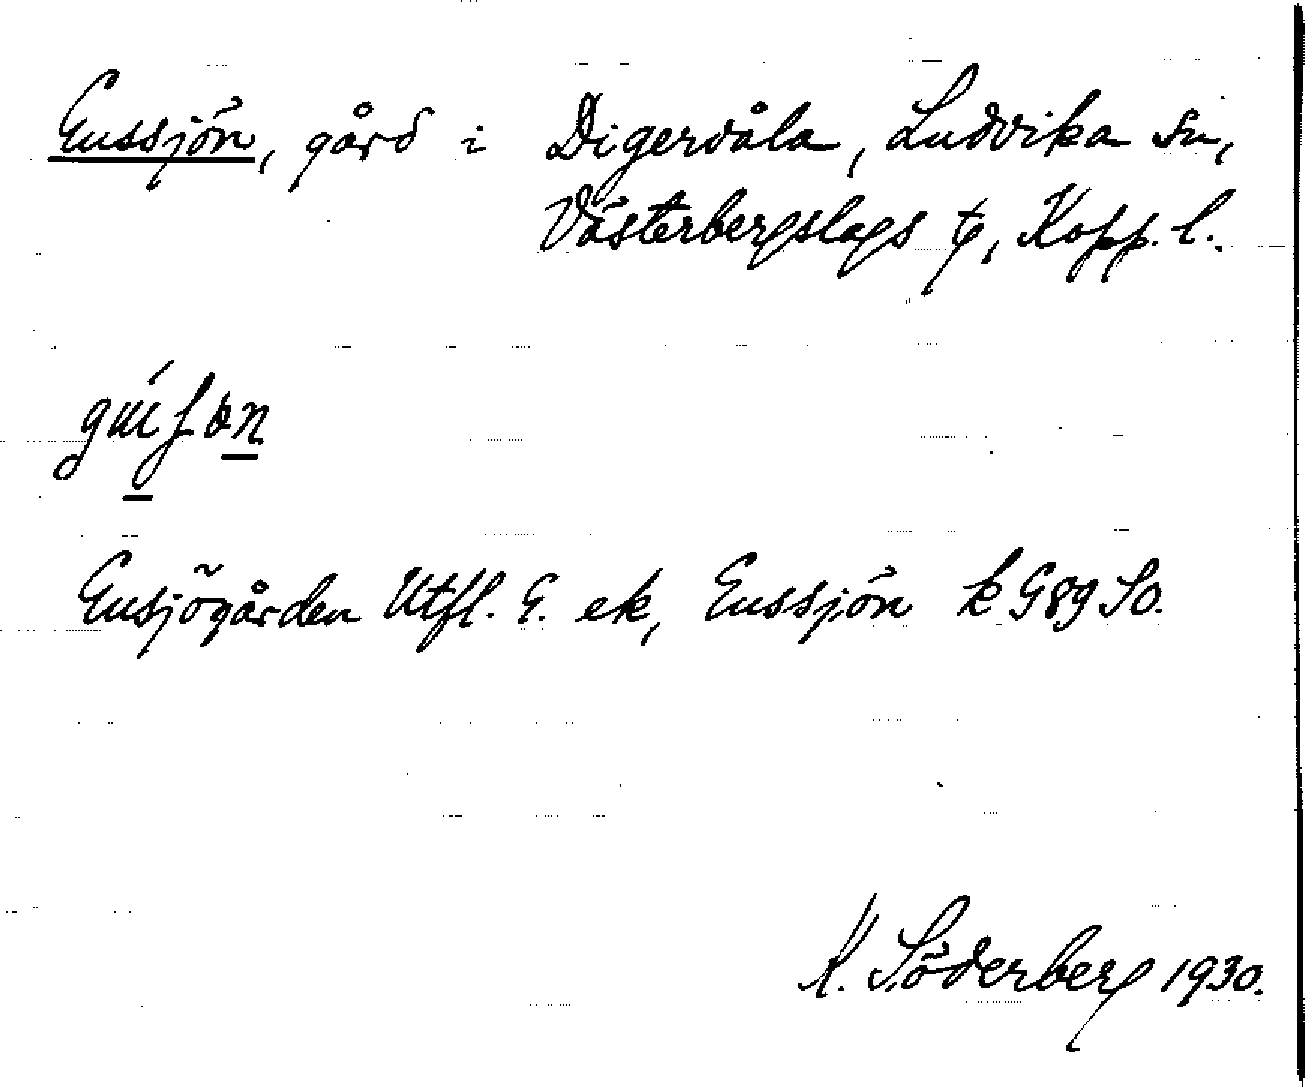 Enssjön, gård i Digervåla, Ludvika sn,
Västerbergslags tg, Kopp. l.
Ensjögården Utfl. G. ek, Enssjön k G 89 SO.
K. Söderberg 1930.